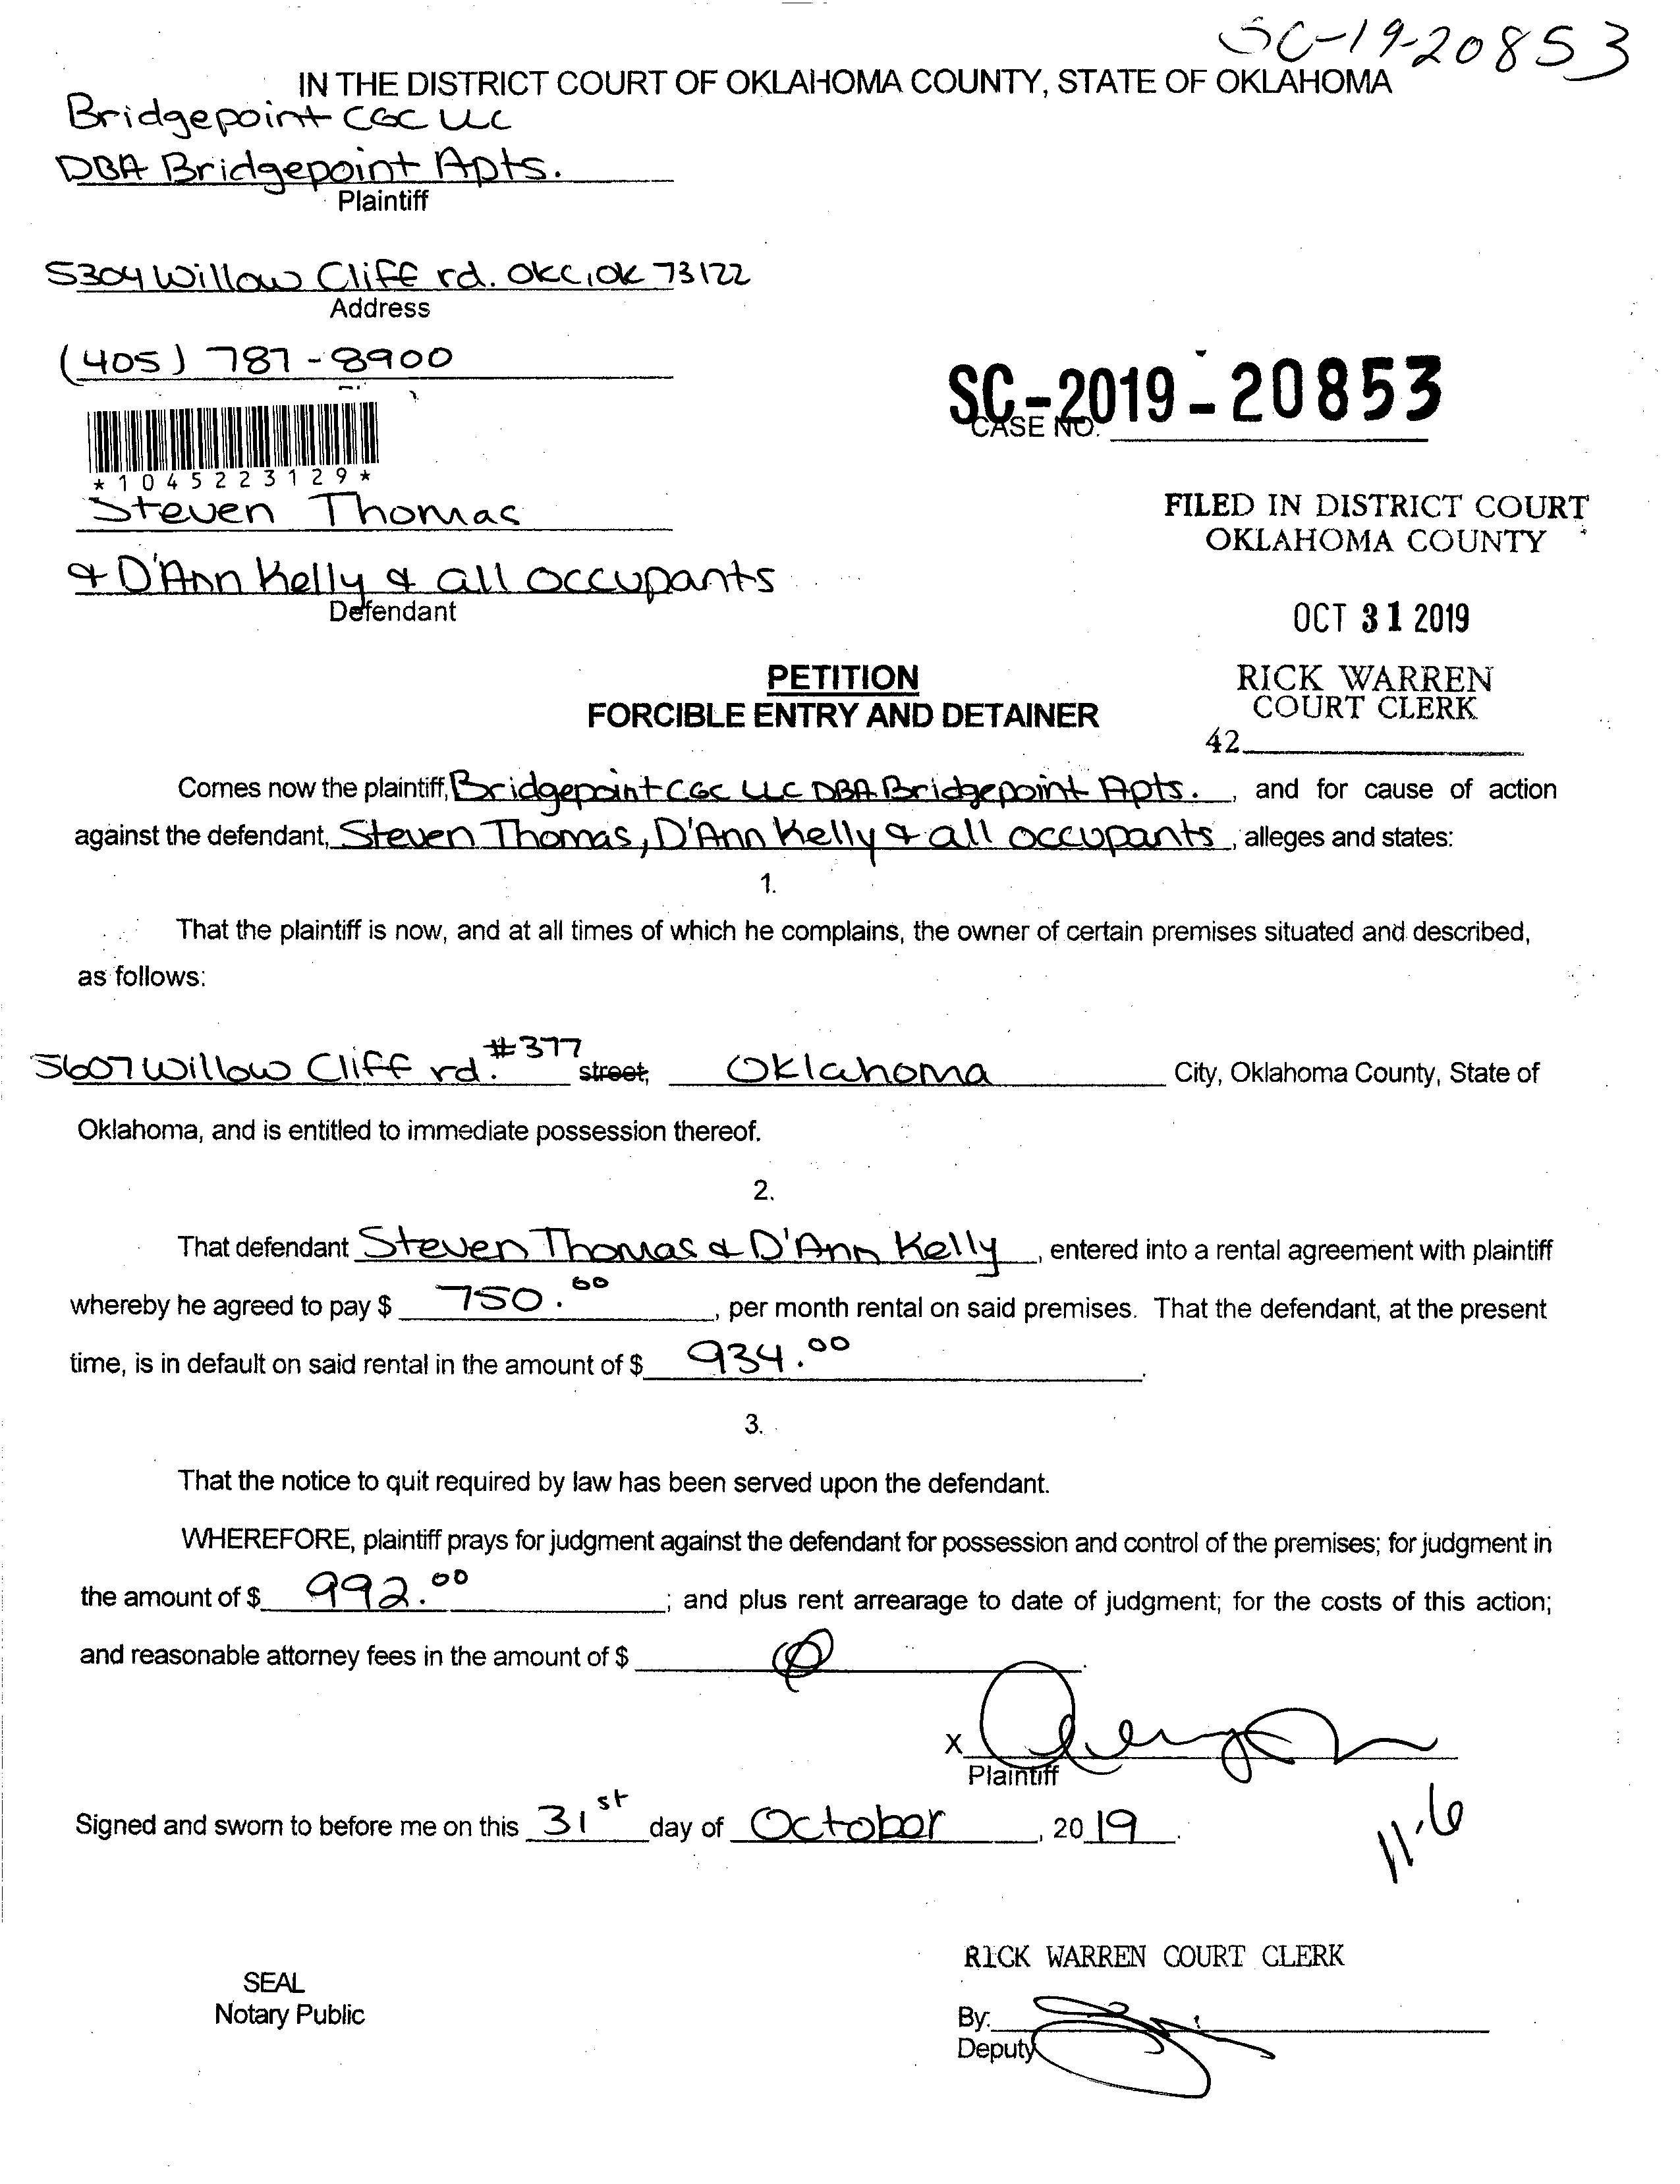 SC-19-20853
IN THE DISTRICT COURT OF OKLAHOMA COUNTY, STATE OF OKLAHOMA
Bridgepoint CGC LLC
DBA Bridgepoint Apts.
Plaintiff
5304 Willow Cliff rd. OKC, OK 73122
Address
(405) 787-8900
SC-2019-20853
CASE NO.
*1045223129*
Steven Thomas
& D'Ann Kelly & all occupants
Defendant
FILED IN DISTRICT COURT
OKLAHOMA COUNTY
OCT 31 2019
RICK WARREN
COURT CLERK
42
PETITION
FORCIBLE ENTRY AND DETAINER
Comes now the plaintiff, Bridgepoint CGC LLC DBA Bridgepoint Apts. , and for cause of action
against the defendant, Steven Thomas, D'Ann Kelly & all occupants , alleges and states:
1.
That the plaintiff is now, and at all times of which he complains, the owner of certain premises situated and described,
as follows:
5607 Willow Cliff rd. #377 street, Oklahoma City, Oklahoma County, State of
Oklahoma, and is entitled to immediate possession thereof.
2.
That defendant Steven Thomas & D'Ann Kelly , entered into a rental agreement with plaintiff
whereby he agreed to pay $ 750.00 , per month rental on said premises. That the defendant, at the present
time, is in default on said rental in the amount of $ 934.00 .
3.
That the notice to quit required by law has been served upon the defendant.
WHEREFORE, plaintiff prays for judgment against the defendant for possession and control of the premises; for judgment in
the amount of $ 992.00 ; and plus rent arrearage to date of judgment; for the costs of this action;
and reasonable attorney fees in the amount of $ .
X
Plaintiff
Signed and sworn to before me on this 31st day of October , 2019 .
11-6
RICK WARREN COURT CLERK
SEAL
Notary Public
By:
Deputy